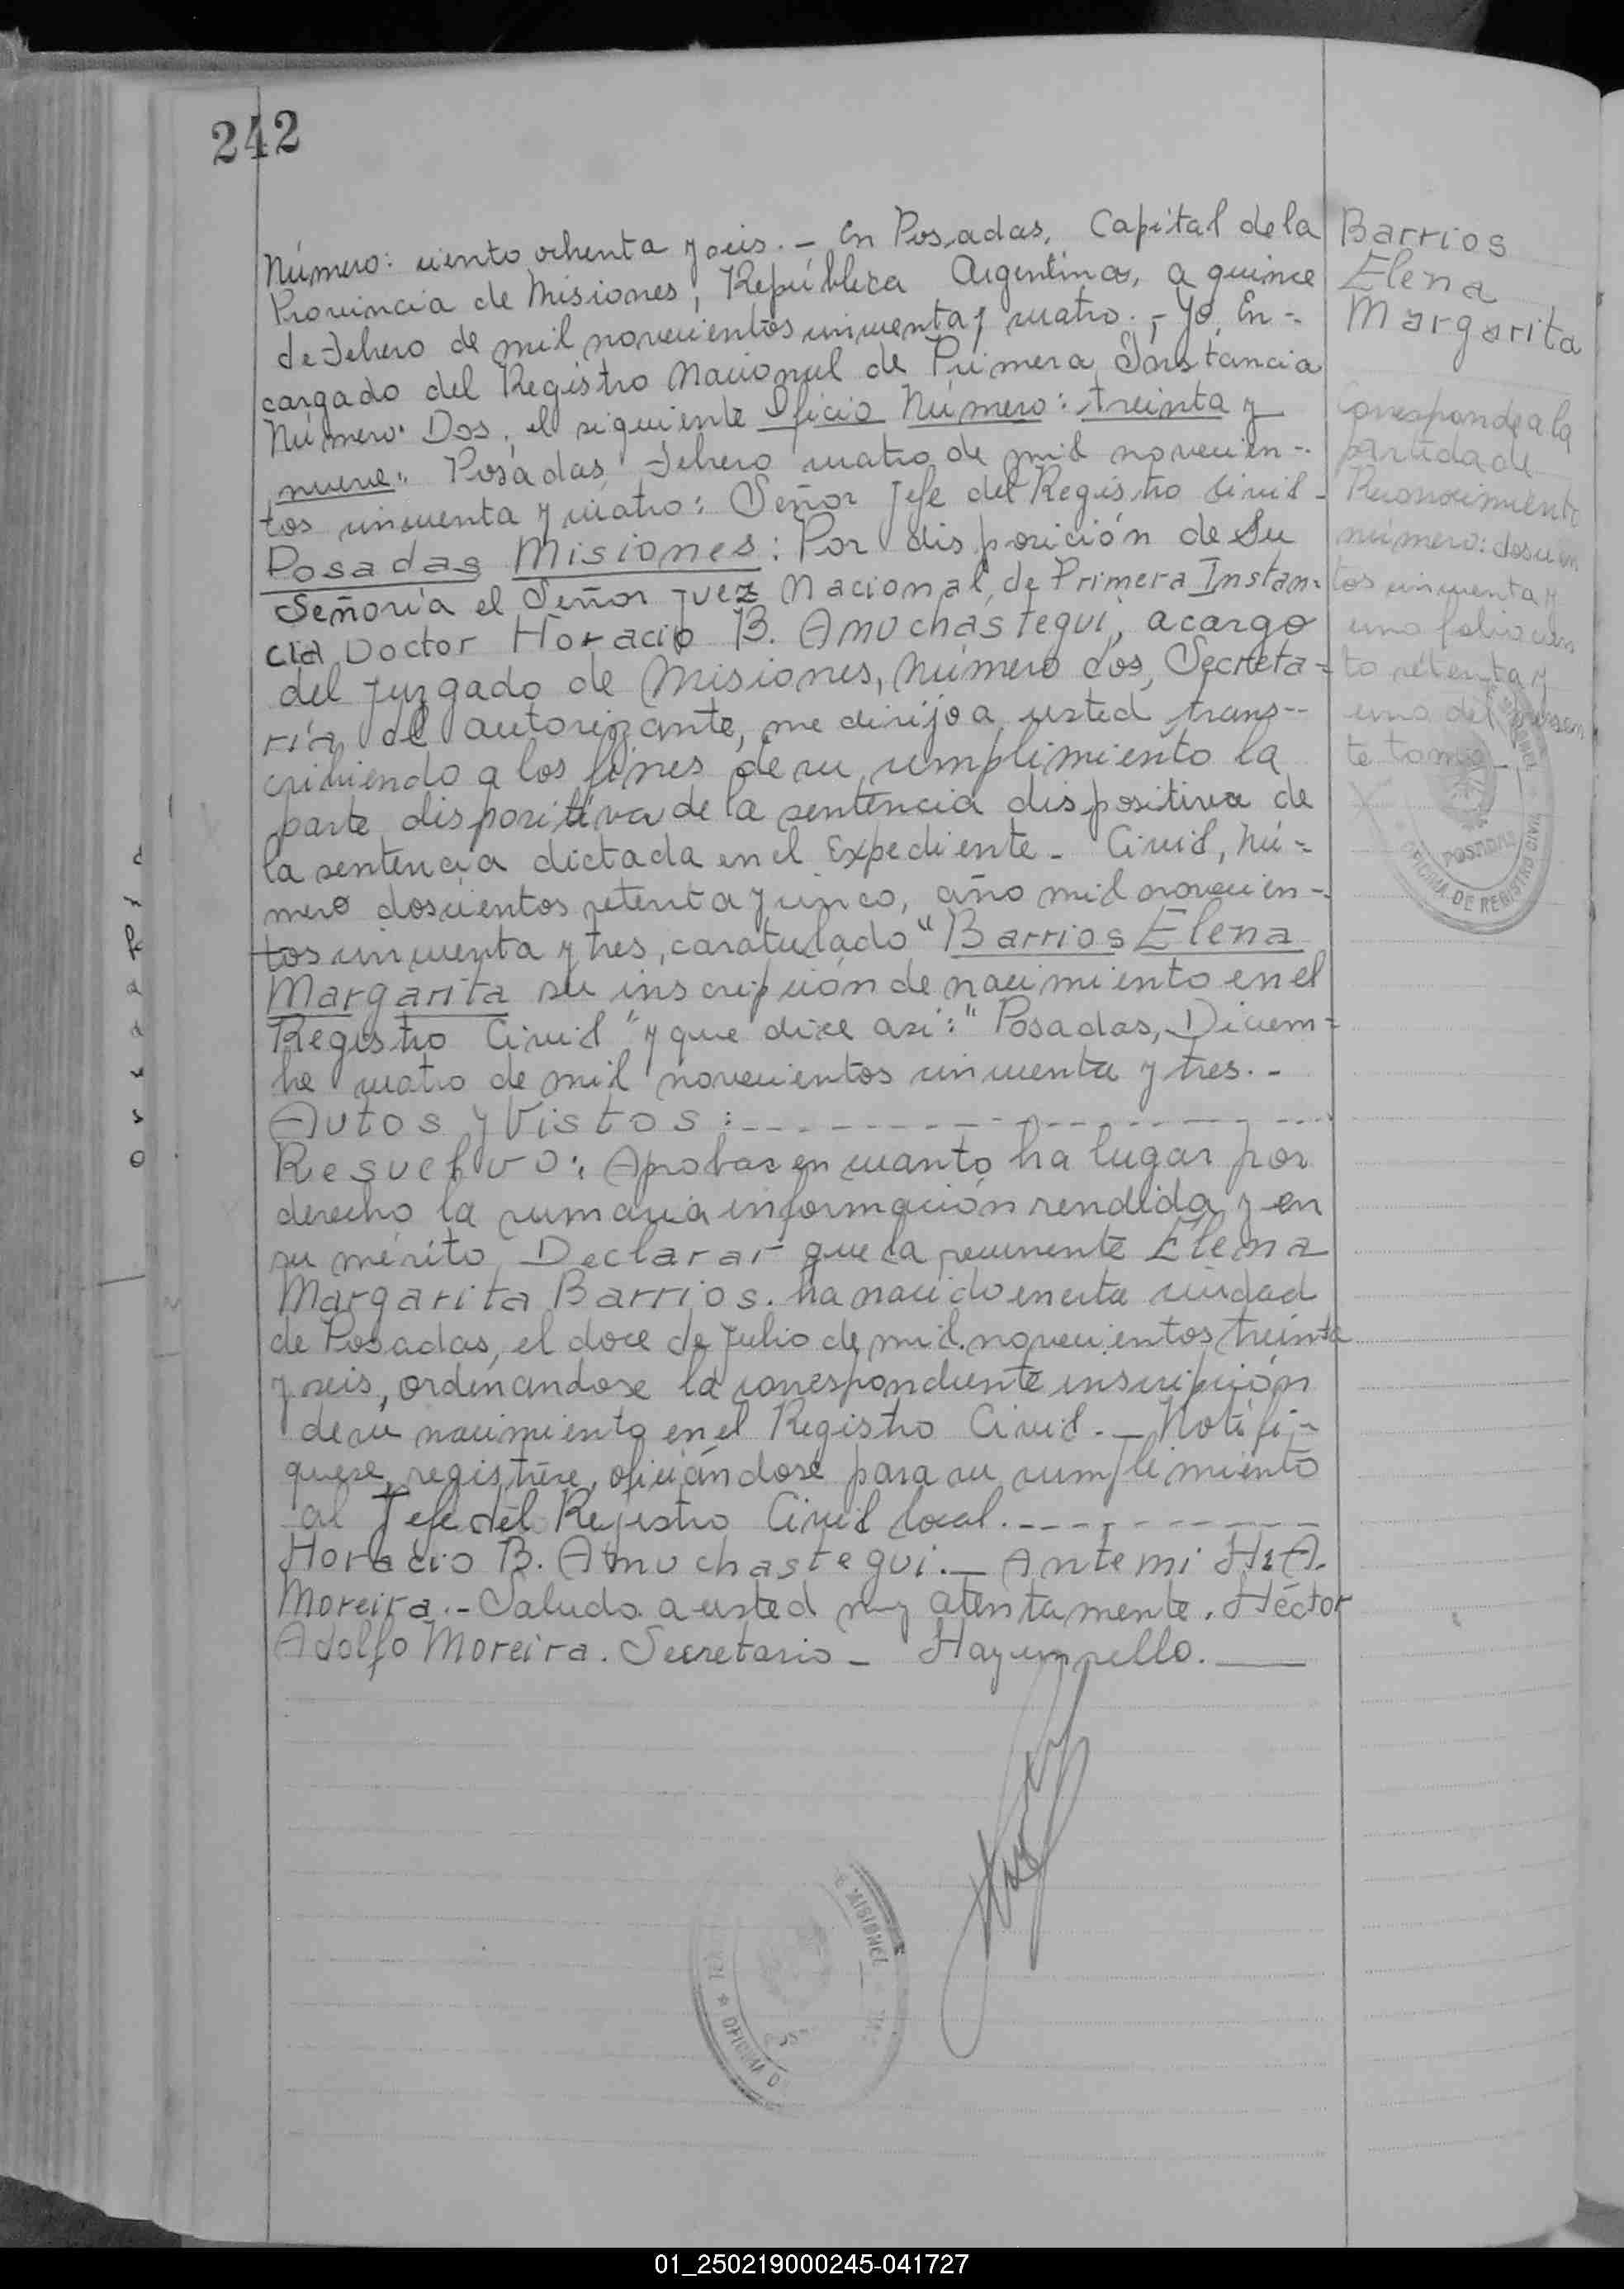 242
Número: ciento ochenta y seis.- En Posadas, Capital de la
Provincia de Misiones, República Argentina, a quince
de Febrero de mil novecientos cincuenta y cuatro.- Yo, En-
cargado del Registro Nacional de Primera Instancia
Número Dos, el siguiente Oficio Número: treinta y
nueve." Posadas, Febrero cuatro de mil novecien-
tos cincuenta y cuatro: Señor Jefe del Registro Civil-
Posadas Misiones: Por disposición de Su
Señoría el Señor Juez Nacional, de Primera Instan-
cia Doctor Horacio B. Amuchástegui, a cargo
del Juzgado de Misiones, Número dos, Secreta-
ría del autorizante, me dirijo a usted trans-
cribiendo a los fines de su cumplimiento la
parte dispositiva de la sentencia dispositiva de
la sentencia dictada en el Expediente- Civil, Nú-
mero doscientos setenta y cinco, año mil novecien-
tos cincuenta y tres, caratulado "Barrios Elena
Margarita su inscripción de nacimiento en el
Registro Civil" y que dice así: "Posadas, Diciem-
bre cuatro de mil novecientos cincuenta y tres.-
Autos y Vistos:
Resuelvo: Aprobar en cuanto ha lugar por
derecho la sumaria información rendida y en
su mérito Declarar que la recurrente Elena
Margarita Barrios. ha nacido en esta ciudad
de Posadas, el doce de Julio de mil novecientos treinta
y seis, ordenandose la correspondiente inscripción
de su nacimiento en el Registro Civil.- Notifí-
quese, regístrese, oficiándose para su cumplimiento
al Jefe del Registro Civil local.
Horacio B. Amuchastegui.- Ante mi H.A.
Moreira.- Saludo a usted muy atentamente. Héctor
Adolfo Moreira. Secretario- Hay un sello.
Barrios
Elena
Margarita
Corresponde a la
partida de
Reconocimiento
número: doscien
tos cincuenta y
uno folio cien
to setenta y
uno del presen
te tomo.-
POSADAS
OFICINA DE REGISTRO CIVIL
MISIONES
OFICINA D
01_250219000245-041727